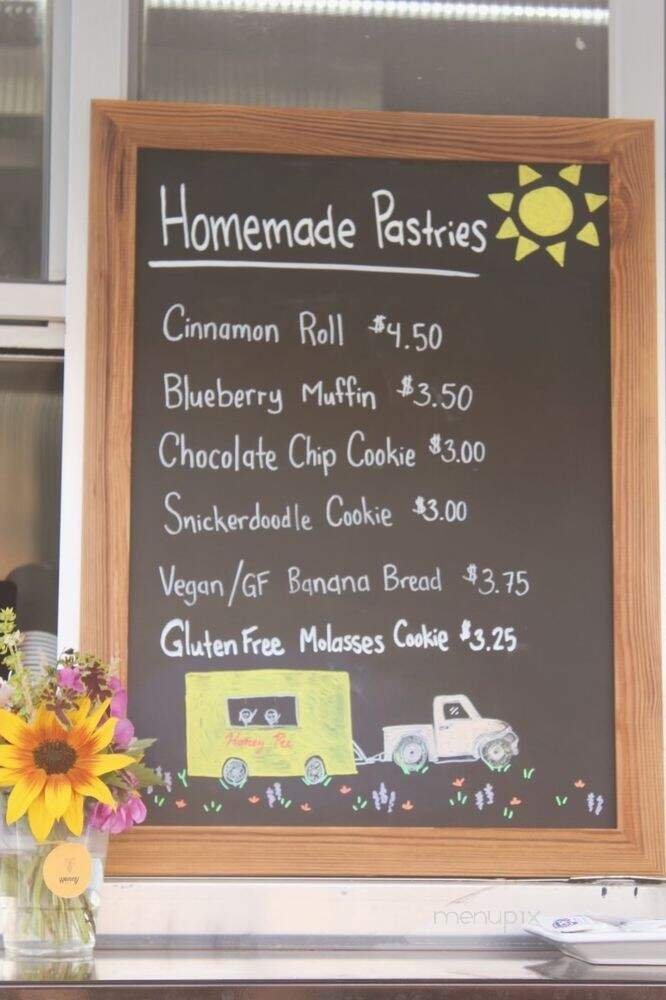 Homemade Pastries
Cinnamon Roll $4.50
Blueberry Muffin $3.50
Chocolate Chip Cookie $3.00
Snickerdoodle Cookie $3.00
Vegan/GF Banana Bread $3.75
Gluten Free Molasses Cookie $3.25
Honey Pie
Honey
menupix